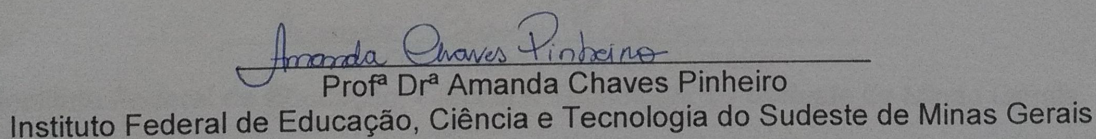 Amanda Chaves Pinheiro
Profª Drª Amanda Chaves Pinheiro
Instituto Federal de Educação, Ciência e Tecnologia do Sudeste de Minas Gerais